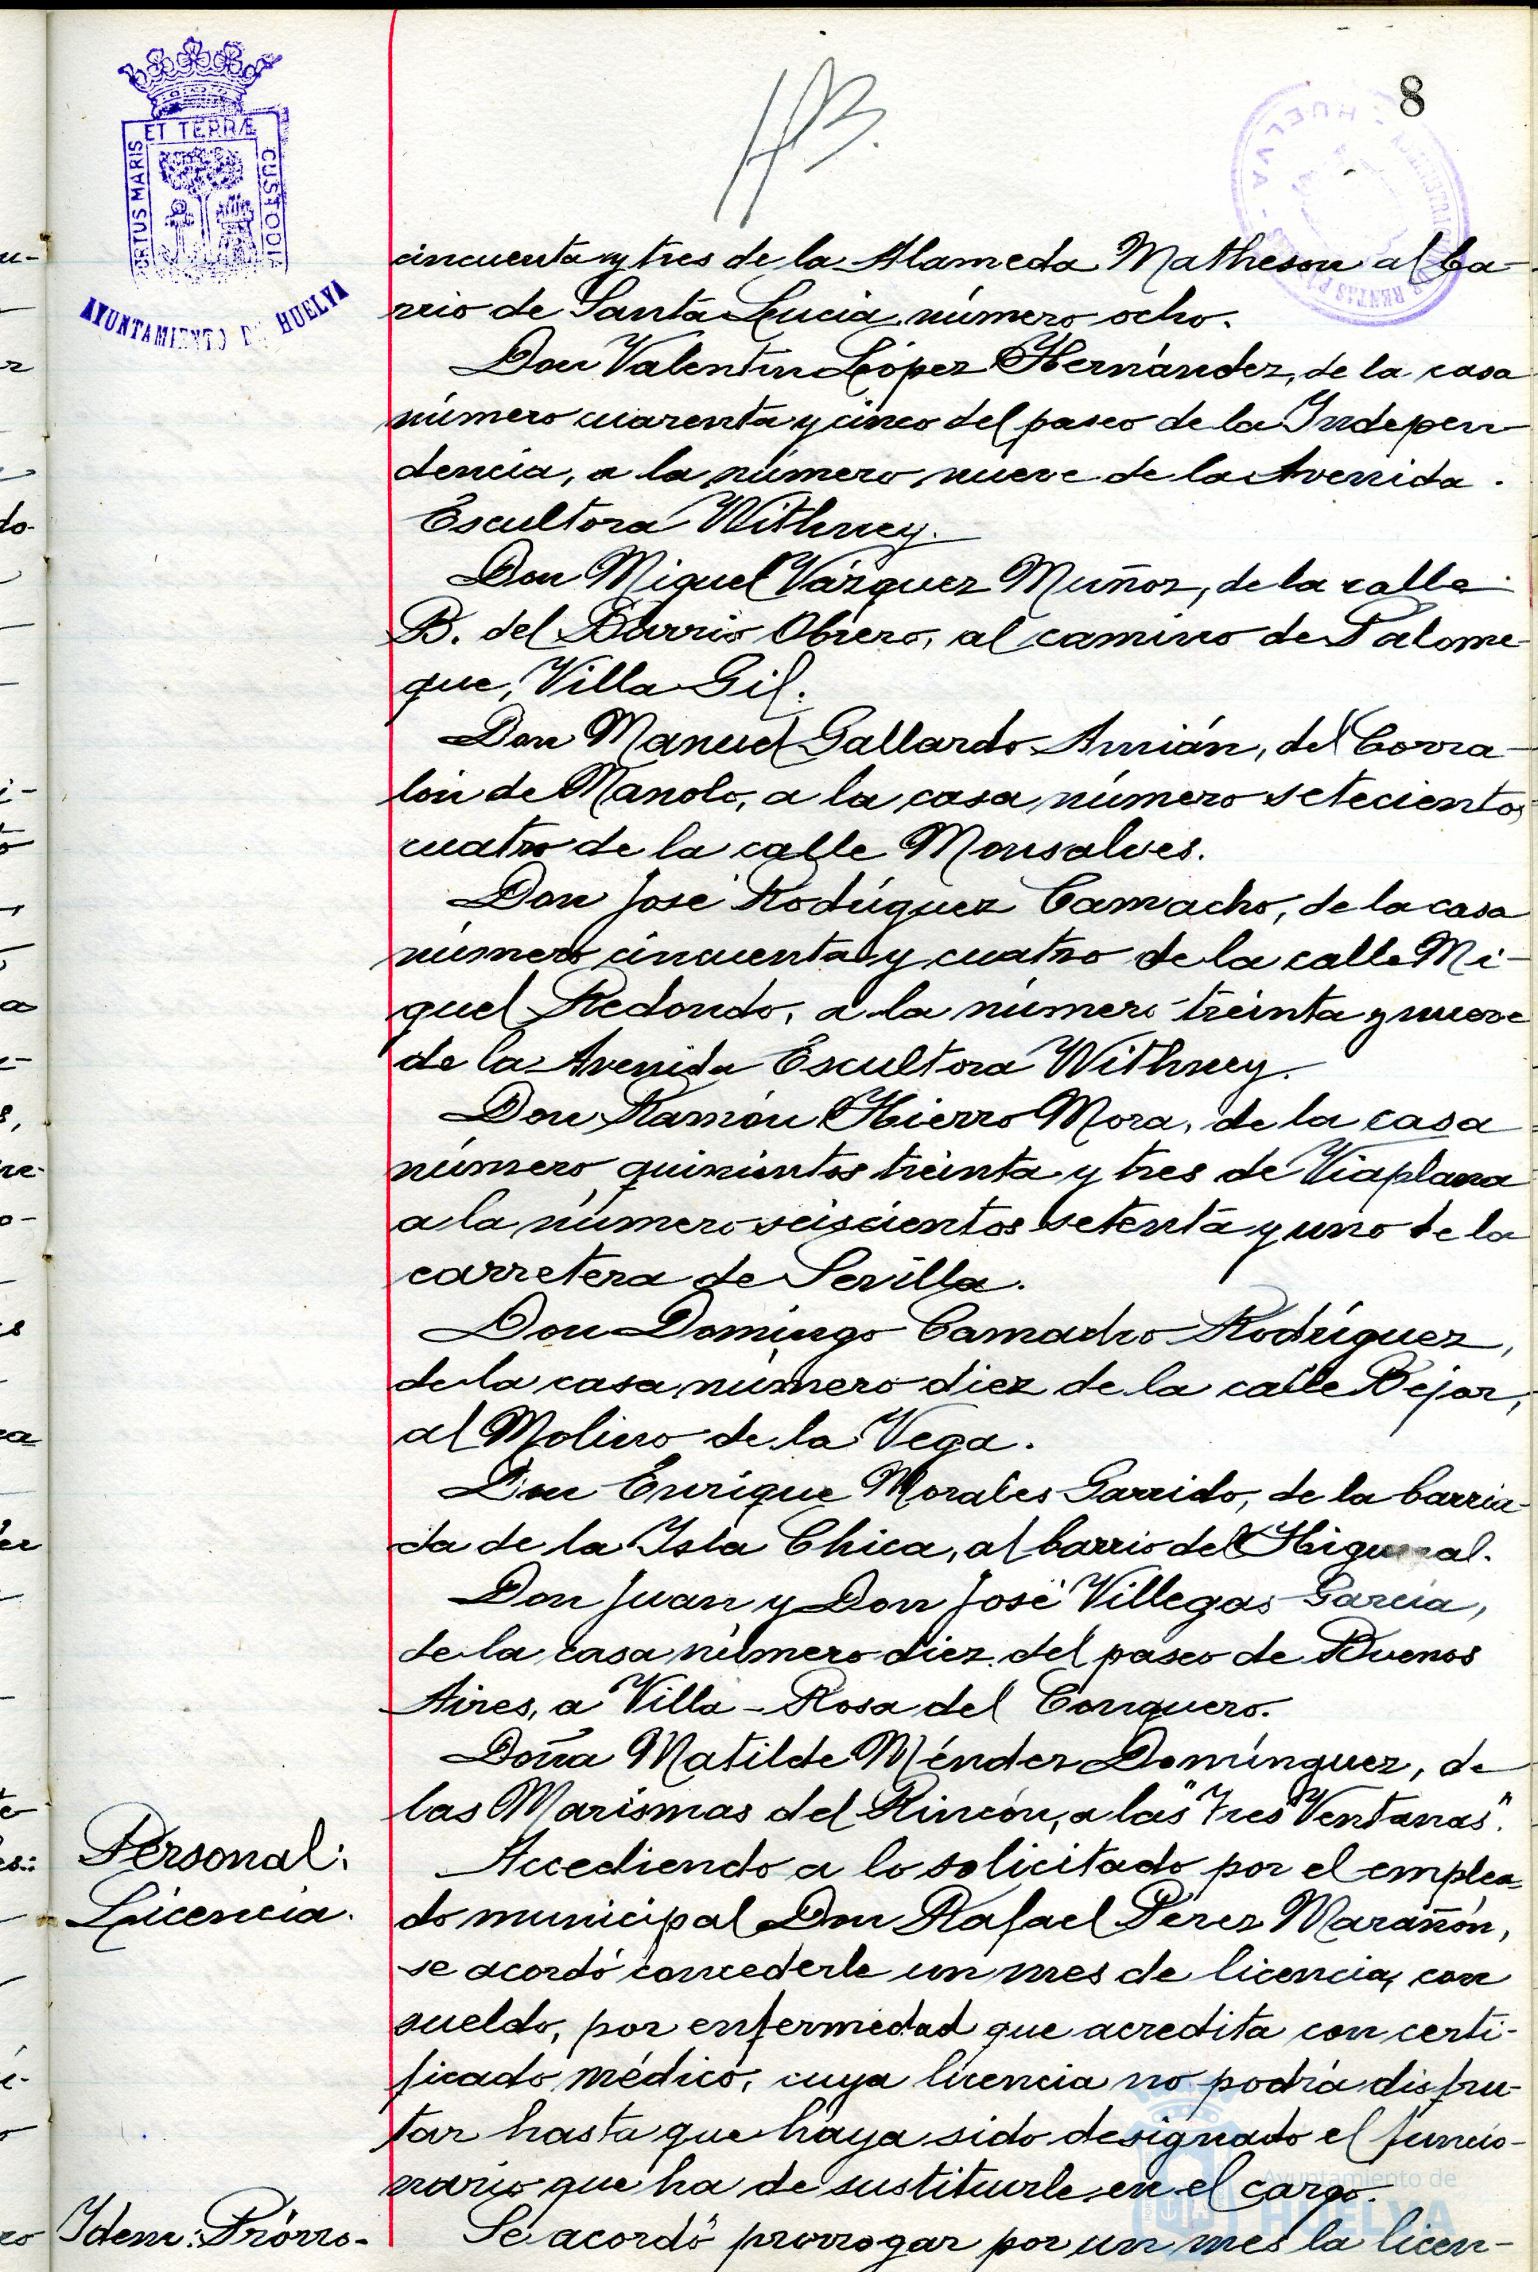 8
PORTUS MARIS ET TERRÆ CUSTODIA
AYUNTAMIENTO DE HUELVA
cincuenta y tres de la Alameda Matheson al ba-
rrio de Santa Lucia, número ocho.
Don Valentin López Hernández, de la casa
número cuarenta y cinco del paseo de la Indepen
dencia, a la número nueve de la Avenida
Escultora Withney.
Don Miguel Vázquez Muñoz, de la calle
B. del Barrio Obrero, al camino de Palome-
que, Villa Gil.
Don Manuel Gallardo Amián, del Corra-
lón de Manolo, a la casa número setecientos
cuatro de la calle Monsalves.
Don José Rodríguez Camacho, de la casa
número cincuenta y cuatro de la calle Mi-
guel Redondo, a la número treinta y nueve
de la Avenida Escultora Withney.
Don Ramón Hierro Mora, de la casa
número quinientos treinta y tres de Viaplana
a la número seiscientos setenta y uno de la
carretera de Sevilla.
Don Domingo Camacho Rodríguez,
de la casa número diez de la calle Bejar,
al Molino de la Vega.
Don Enrique Morales Garrido, de la barria-
da de la Isla Chica, al barrio del Higueral.
Don Juan y Don José Villegas García,
de la casa número diez del paseo de Buenos
Aires, a Villa-Rosa del Conquero.
Doña Matilde Méndez Domínguez, de
las Marismas del Rincón, a las "Tres Ventanas".
Personal:
Licencia.
Accediendo a lo solicitado por el emplea-
do municipal Don Rafael Pérez Marañón,
se acordó concederle un mes de licencia, con
sueldo, por enfermedad que acredita con certi-
ficado médico, cuya licencia no podrá disfru-
tar hasta que haya sido designado el funcio-
nario que ha de sustituirle en el cargo.
Idem: Prórro-
Se acordó prorrogar por un mes la licen-
Ayuntamiento de
HUELVA